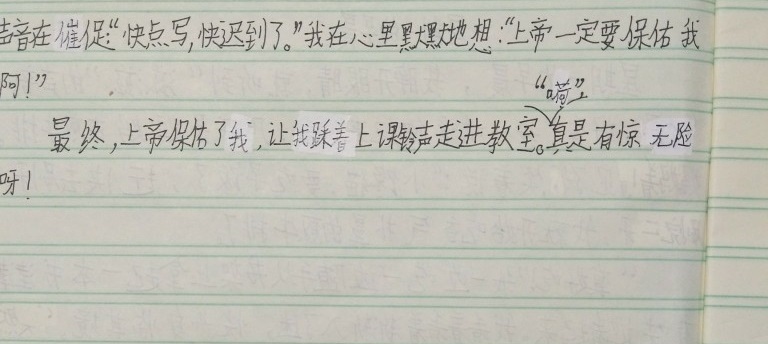 声音在催促:“快点写,快迟到了。”我在心里默默地想:“上帝一定要保佑我
啊!”
“嗬”
最终,上帝保佑了我,让我踩着上课铃声走进教室。真是有惊无险
呀!